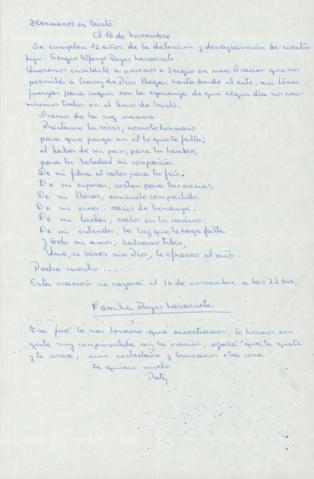 Hermanos en Cristo:
El 16 de Noviembre
Se cumplen 12 años de la detención y desaparición de nuestro
hijo: Sergio Alfonso Reyes Navarrete.
Queremos invitarle a unirnos a Sergio en una Oración que nos
permita a través de Dios llegar hasta donde él esté; así tener
fuerzas para seguir con la esperanza de que algún día nos
todos en el Reino de Cristo.
de la sig manera:
Préstame tu crisis, remoto hermano
para que ponga en él lo que te falta;
el sabor de mi pan, para tu hambre,
para tu Soledad mi compañía
De mi fibra el calor para tu frío.
De mi esperar, sostén para tus ansias,
De mi llorar, consuelo compartido.
De mi creer, oasis de bonanza.
De mi luchar, valor en tu camino.
De mi entender, la luz que te haga falta
y todo mi amor, bálsamo tibio,
Uno, si vives sin Dios, te ofrezco el mío.
Padre nuestro ....
Esta oración se rezará el 16 de noviembre a las 22 hrs.
Familia Reyes Navarrete.
Esa fué la más hermosa que encontramos, la hicimos con
gente muy comprometida con la oración, ojalá que te guste
y te sirva, sino contéstame y buscamos otra cosa
Te quiero mucho